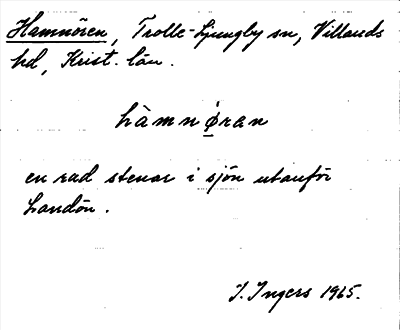 Hamnören, Trolle-Ljungby sn, Villands
hd, Krist. län.
hàmnø̱ran
en rad stenar i sjön utanför
Landön.
I. Ingers 1965.